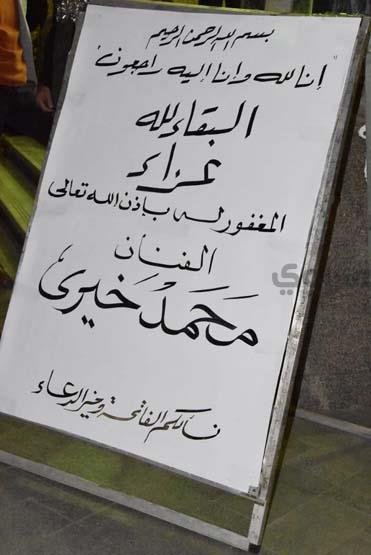 بسم الله الرحمن الرحيم
"إنا لله وإنا إليه راجعون"
البقاء لله
عزاء
المغفور له بإذن الله تعالى
الفنان
محمد خيري
نسألكم الفاتحة وخير الدعاء